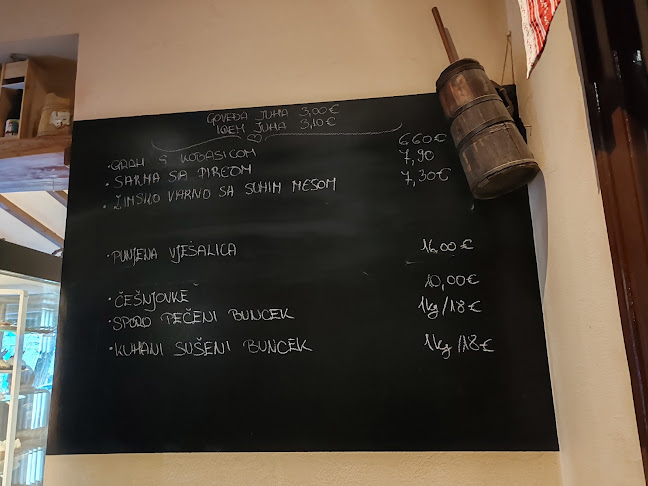 GOVEĐA JUHA 3,00€
JUHA 3,10€
• GRAH S KOBASICOM 6 60€
• SARMA SA PIREOM 7,90
• ZIMSKO VARIVO SA SUHIM MESOM 7,30€
• PUNJENA VJEŠALICA 16,00€
• ČEŠNJOVKE 10,00€
• SPORO PEČENI BUNCEK 1kg/18€
• KUHANI SUŠENI BUNCEK 1kg/18€